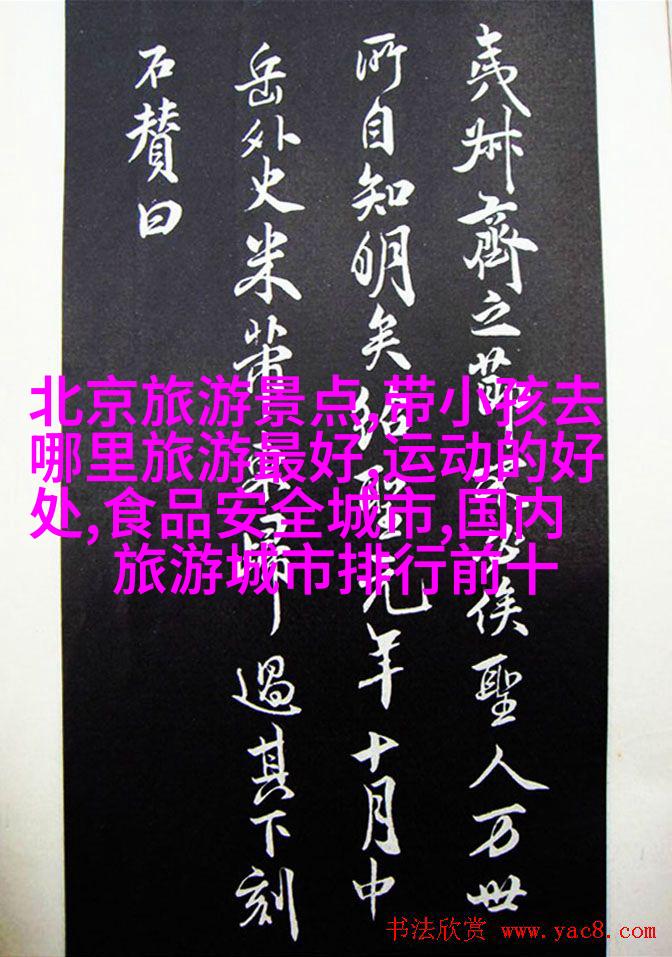 夷叔齊之節俟聖人万世
所自知明矣紹聖元年十月中
岳外史米芾東歸過其下刻
石贊曰
北京旅游景点,带小孩去
哪里旅游最好,运动的好
处,食品安全城市,国内
旅游城市排行前十
书法欣赏 www.yac8.com